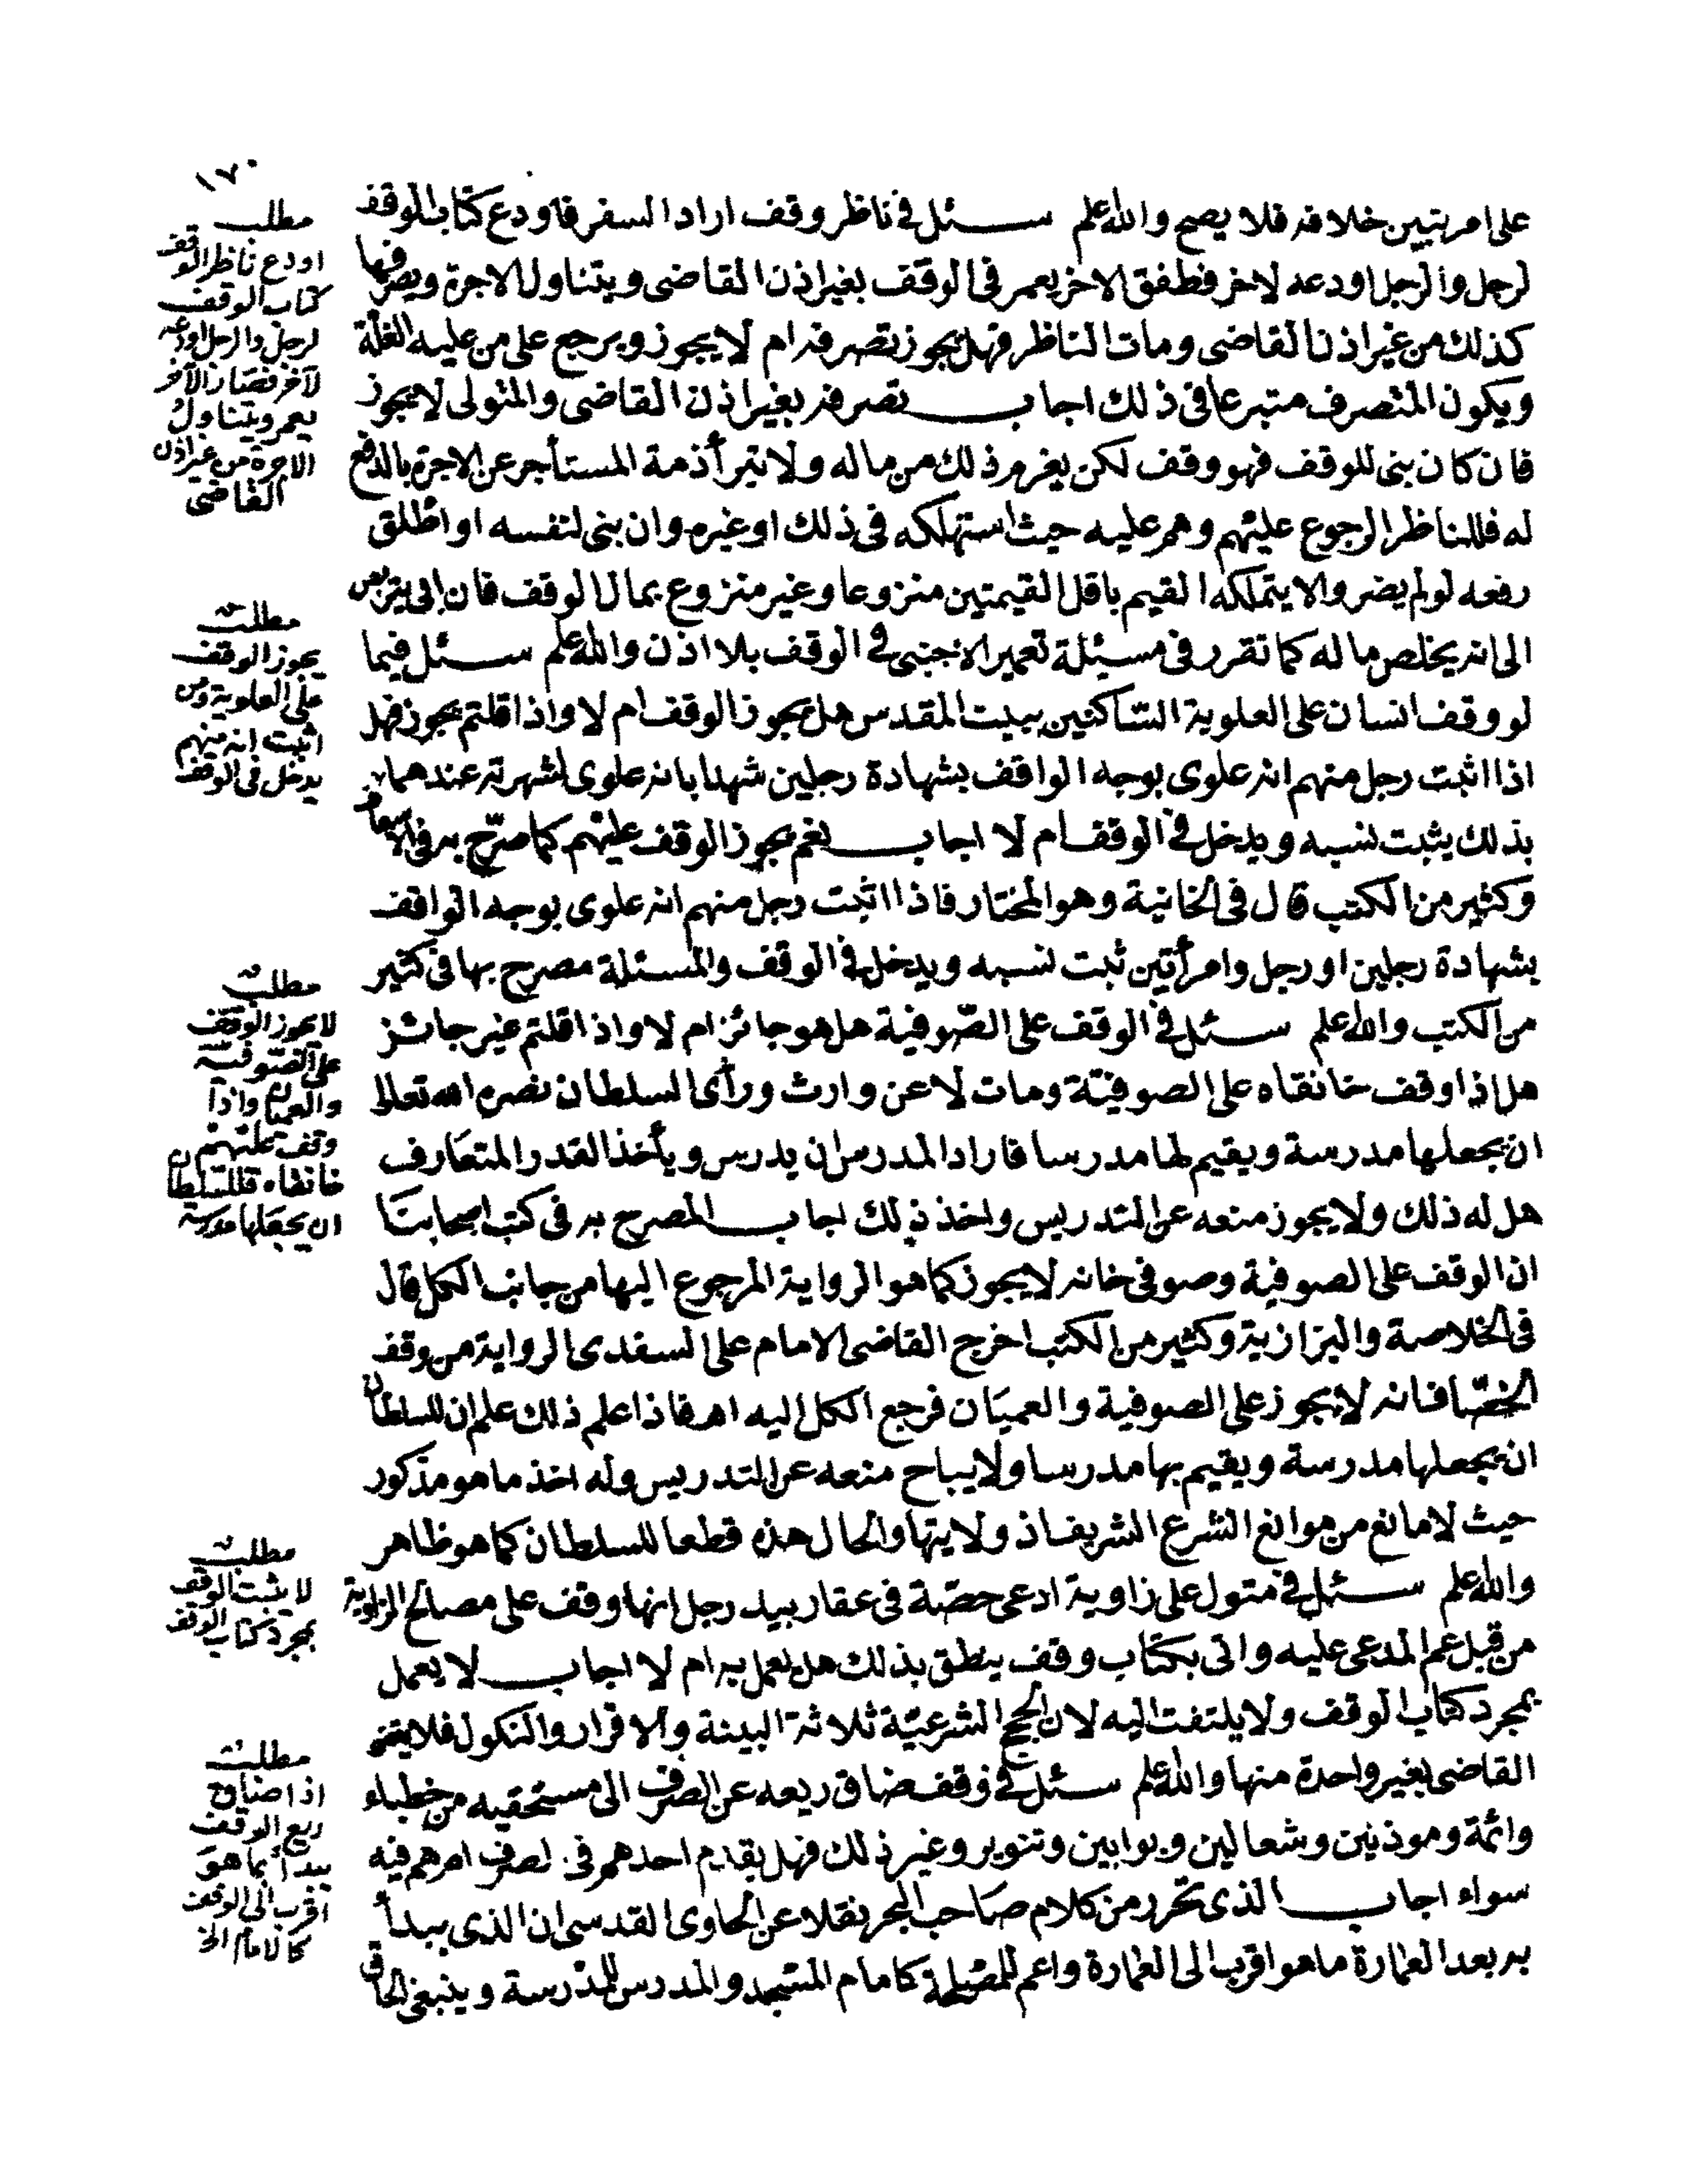 ١٧٠
على امر يتبين خلافه فلا يصح والله اعلم سئل في ناظر وقف اراد السفر فاودع كتاب الوقف
لرجل والرجل اودعه لاخر فطفق الاخر يعمر في الوقف بغير اذن القاضى ويتناول الاجرة ويصرفها
كذلك من غير اذن القاضى ومات الناظر فهل يجوز تصرفه ام لا يجوز ويرجع على من عليه الغلة
ويكون المتصرف متبرعا فى ذلك اجاب تصرفه بغير اذن القاضى والمتولى لا يجوز
فان كان بنى للوقف فهو وقف لكن يغرم ذلك من ماله ولا تبرأ ذمة المستأجر عن الاجرة بالدفع
له فللناظر الرجوع عليهم وهم عليه حيث استهلكه فى ذلك او غيره وان بنى لنفسه او اطلق
رفعه لو لم يضر والا يتملكه القيم باقل القيمتين منزوعا وغير منزوع بمال الوقف فان ابى يتربص
الى انه يخلص ماله كما تقرر فى مسئلة تعمير الاجنبى فى الوقف بلا اذن والله اعلم سئل فيما
لو وقف انسان على العلوية الساكنين ببيت المقدس هل يجوز الوقف ام لا واذا قلتم يجوز فهل
اذا اثبت رجل منهم انه علوى بوجه الواقف بشهادة رجلين شهدا بانه علوى لشهرته عندهما
بذلك يثبت نسبه ويدخل في الوقف ام لا اجاب نعم يجوز الوقف عليهم كما صرّح به فى الاسعاف
وكثير من الكتب قال فى الخانية وهو المختار فاذا اثبت رجل منهم انه علوى بوجه الواقف
بشهادة رجلين او رجل وامرأتين ثبت نسبه ويدخل في الوقف والمسئلة مصرح بها فى كثير
من الكتب والله اعلم سئل في الوقف على الصّوفية هل هو جائز ام لا واذا قلتم غير جائز
هل اذا وقف خانقاه على الصوفيّة ومات لا عن وارث ورأى السلطان نصره الله تعالى
ان يجعلها مدرسة ويقيم لها مدرسا فاراد المدرس ان يدرس ويأخذ القدر المتعارف
هل له ذلك ولا يجوز منعه عن التدريس واخذ ذلك اجاب المصرح به فى كتب اصحابنا
ان الوقف على الصوفية وصوفى خانه لا يجوز كما هو الرواية المرجوع اليها من جانب الكل قال
فى الخلاصة والبزازية وكثير من الكتب اخرج القاضى الامام على السغدى الرواية من وقف
الخصّاف انه لا يجوز على الصوفية والعميان فرجع الكل اليه اهـ فاذا علم ذلك علم ان للسلطان
ان يجعلها مدرسة ويقيم بها مدرسا ولا يباح منعه عن التدريس وله اخذ ما هو مذكور
حيث لا مانع من موانع الشرع الشريف اذ ولايتها والحال هذه قطعا للسلطان كما هو ظاهر
والله اعلم سئل في متول على زاوية ادعى حصّة فى عقار بيد رجل انها وقف على مصالح الزاوية
من قبل عم المدعى عليه واتى بكتاب وقف ينطق بذلك هل يعمل به ام لا اجاب لا يعمل
بمجرد كتاب الوقف ولا يلتفت اليه لان الحجج الشرعيّة ثلاثة البينة والاقرار والنكول فلا يقضى
القاضى بغير واحدة منها والله اعلم سئل في وقف ضاق ريعه عن الصرف الى مستحقيه من خطباء
وائمة وموذنين وشعالين وبوابين وتنوير وغير ذلك فهل يقدم احدهم فى الصرف ام هم فيه
سواء اجاب الذى تحرر من كلام صاحب البحر نقلا عن الحاوى القدسى ان الذى يبدأ
به بعد العمارة ما هو اقرب الى العمارة واعم للمصلحة كامام المسجد والمدرس للمدرسة وينبغى الحاق
مطلب
اودع ناظر الوقف
كتاب الوقف
لرجل والرجل اودعه
لآخر فصار الآخر
يعمر ويتناول
الاجرة من غير اذن
القاضى
مطلب
يجوز الوقف
على العلوية ومن
اثبت انه منهم
يدخل فى الوقف
مطلب
لا يجوز الوقف
على الصوفية
والعميان واذا
وقف عليهم
خانقاه فللسلطان
ان يجعلها مدرسة
مطلب
لا يثبت الوقف
بمجرد كتاب الوقف
مطلب
اذا ضاق
ريع الوقف
يبدأ بما هو
اقرب الى الوقف
كالامام الخ